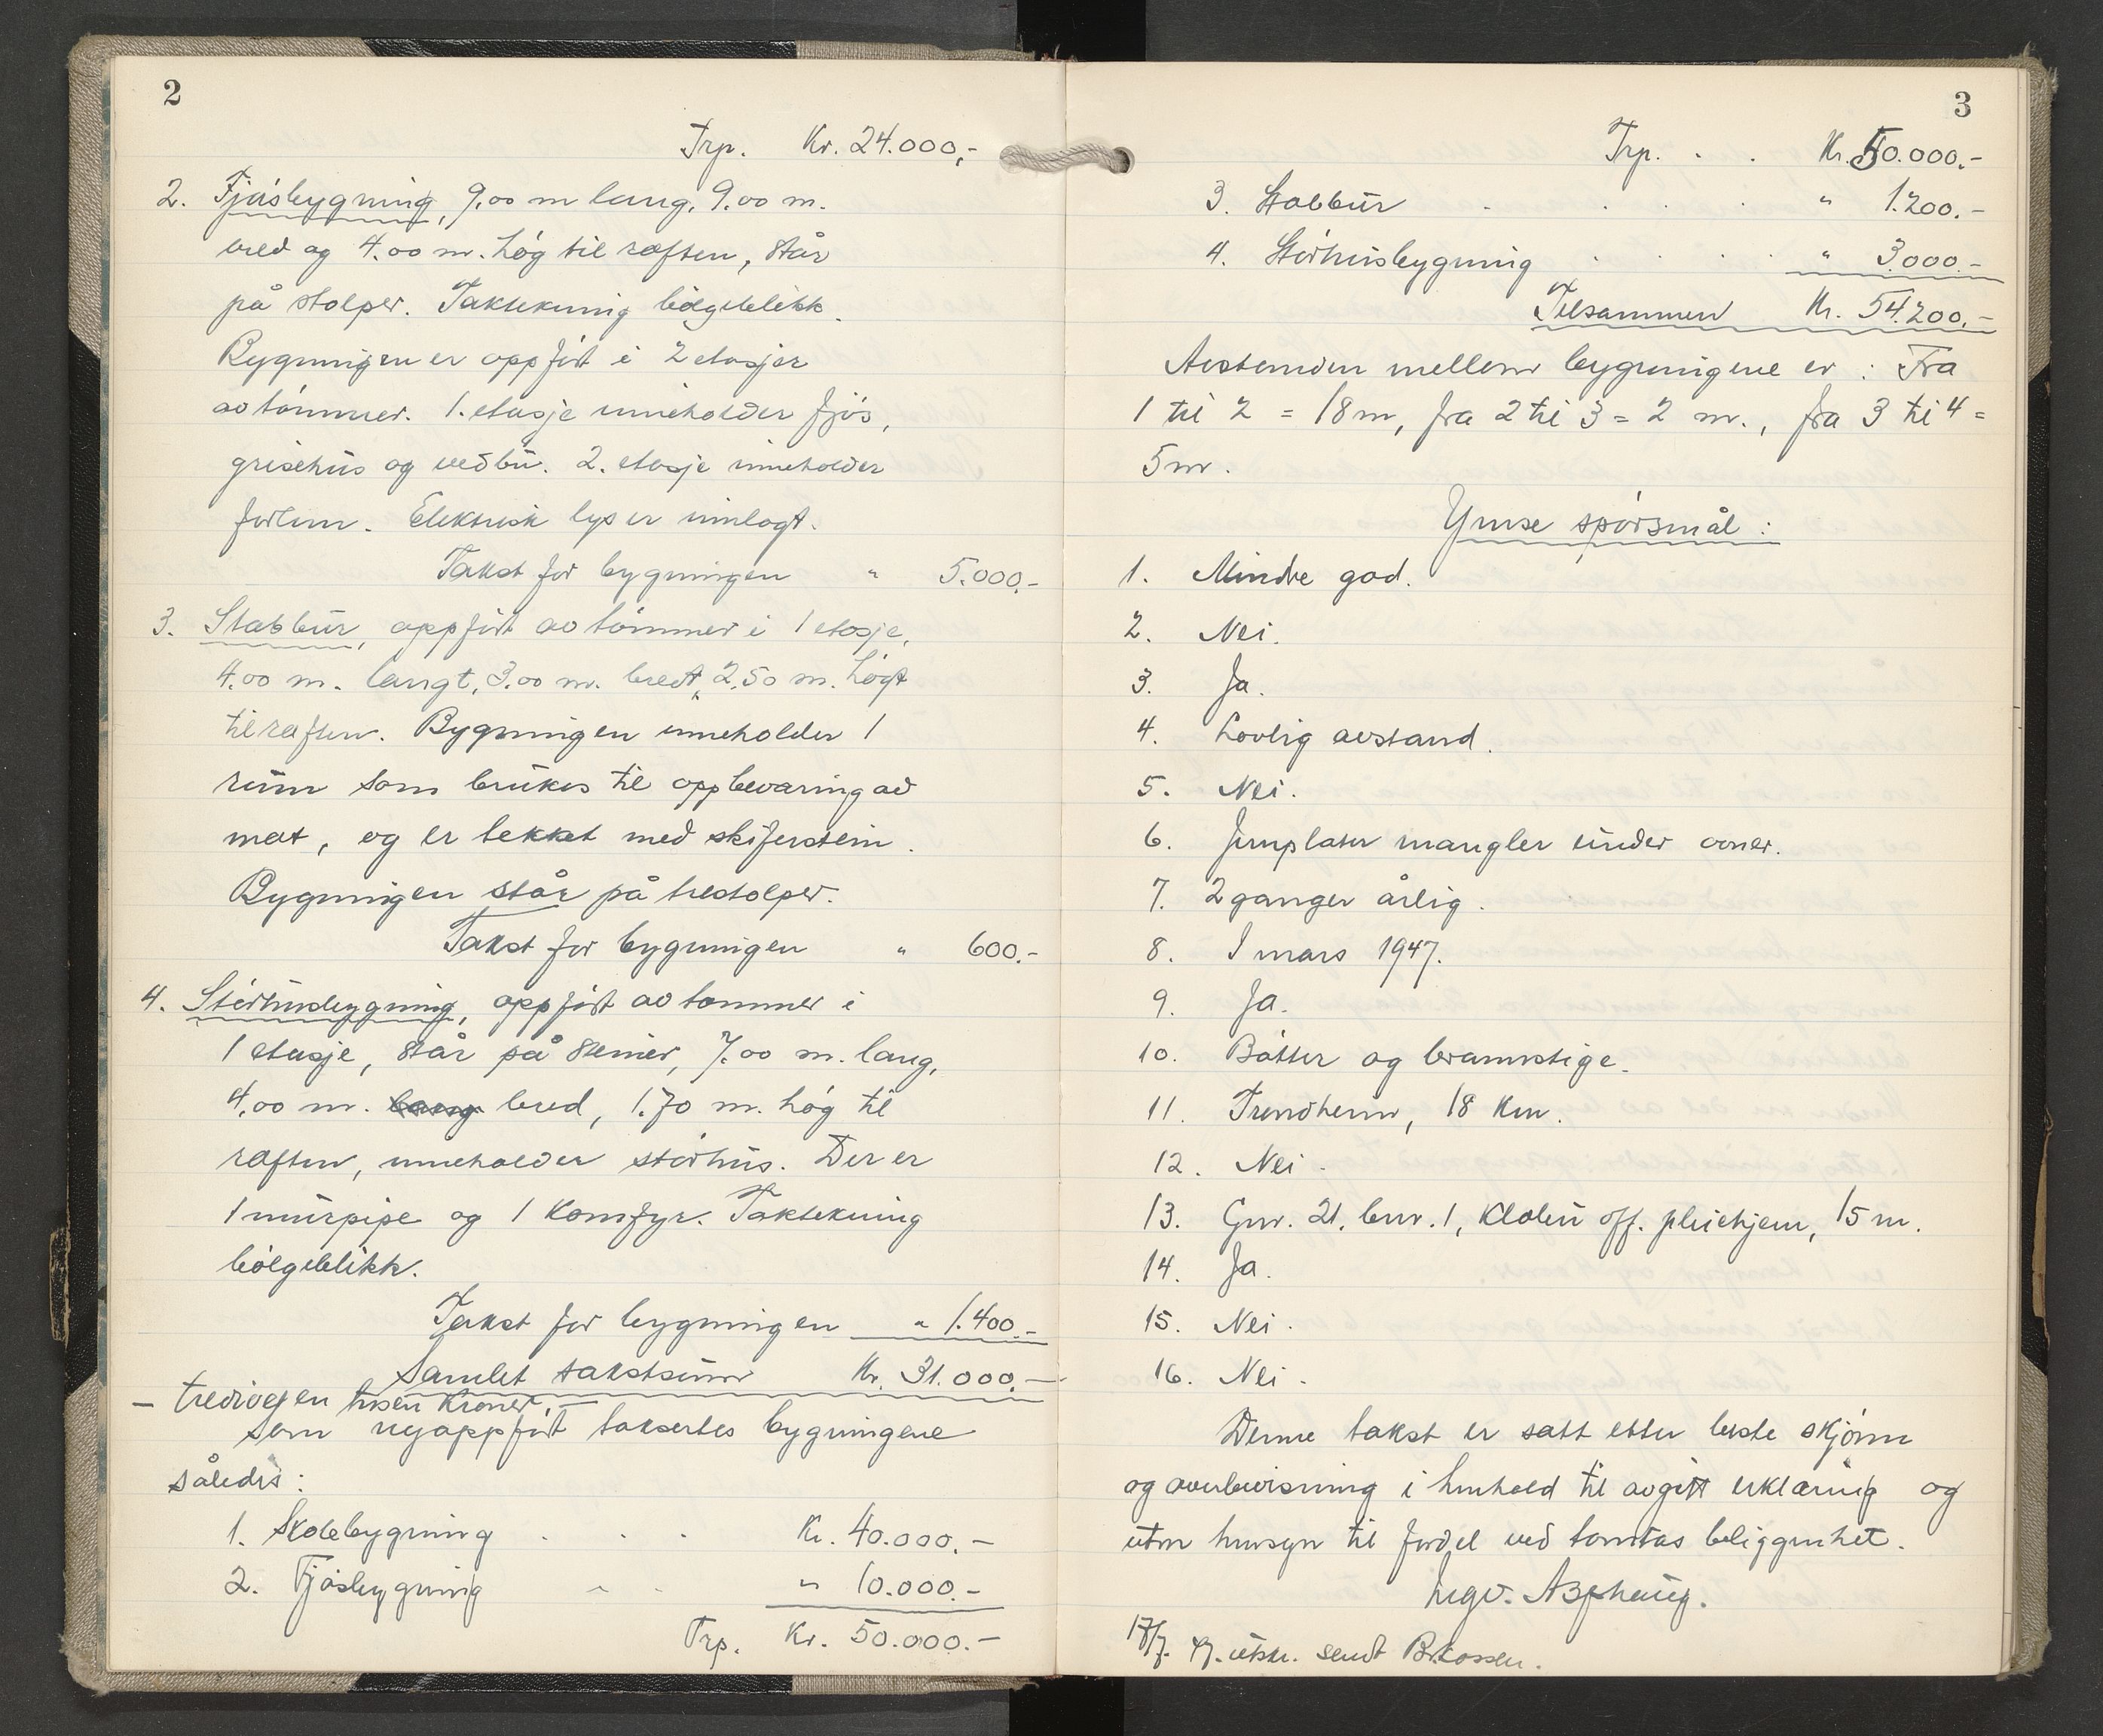 2
Trp. Kr. 24.000,-
2. Fjøsbygning, 9.00 m lang, 9.00 m.
bred og 4.00 m. høg til raften, står
på stolper. Taktekning bølgeblikk.
Bygningen er oppført i 2 etasjer
av tømmer. 1. etasje inneholder fjøs,
grisehus og vedbu. 2. etasje inneholder
forlem. Elektrisk lys er innlagt.
Takst for bygningen " 5.000,-
3. Stabbur, oppført av tømmer i 1 etasje,
4.00 m. langt, 3.00 m. bredt, 2.50 m. høgt
til raften. Bygningen inneholder 1
rum som brukes til oppbevaring av
mat, og er tekket med skiferstein.
Bygningen står på trestolper.
Takst for bygningen " 600.-
4. Størhusbygning, oppført av tømmer i
1 etasje, står på steiner, 7.00 m. lang,
4.00 m. lang bred, 1.70 m. høg til
raften, inneholder størhus. Der er
1 murpipe og 1 komfyr. Taktekning
bølgeblikk.
Takst for bygningen " 1.400.-
Samlet takstsum Kr. 31.000.-
- trediveen tusen kroner. -
Som nyoppført takseres bygningene
således:
1. Skolebygning . . . Kr. 40.000.-
2. Fjøsbygning . . " 10.000.-
Trp. Kr. 50.000.-
3
Trp. . . Kr. 50.000.-
3. Stabbur . . . . " 1.200.-
4. Størhusbygning . . . . " 3.000.-
Tilsammen Kr. 54.200.-
Avstanden mellem bygningene er: Fra
1 til 2 = 18 m, fra 2 til 3 = 2 m., fra 3 til 4 =
5 m.
Ymse spørsmål:
1. Mindre god.
2. Nei.
3. Ja.
4. Lovlig avstand.
5. Nei.
6. Jernplater mangler under ovner.
7. 2 ganger årlig.
8. I mars 1947.
9. Ja.
10. Bøtter og brannstige.
11. Trondheim, 18 km.
12. Nei.
13. Gnr. 21, bnr. 1, Klæbu off. pleiehjem, 15 m.
14. Ja.
15. Nei.
16. Nei.
Denne takst er satt etter beste skjønn
og overbevisning i henhold til avgitt erklæring og
uten hensyn til fordel ved tomtas beliggenhet.
Ingv. Asphaug.
17/7. utskr. sendt Br.kassen.